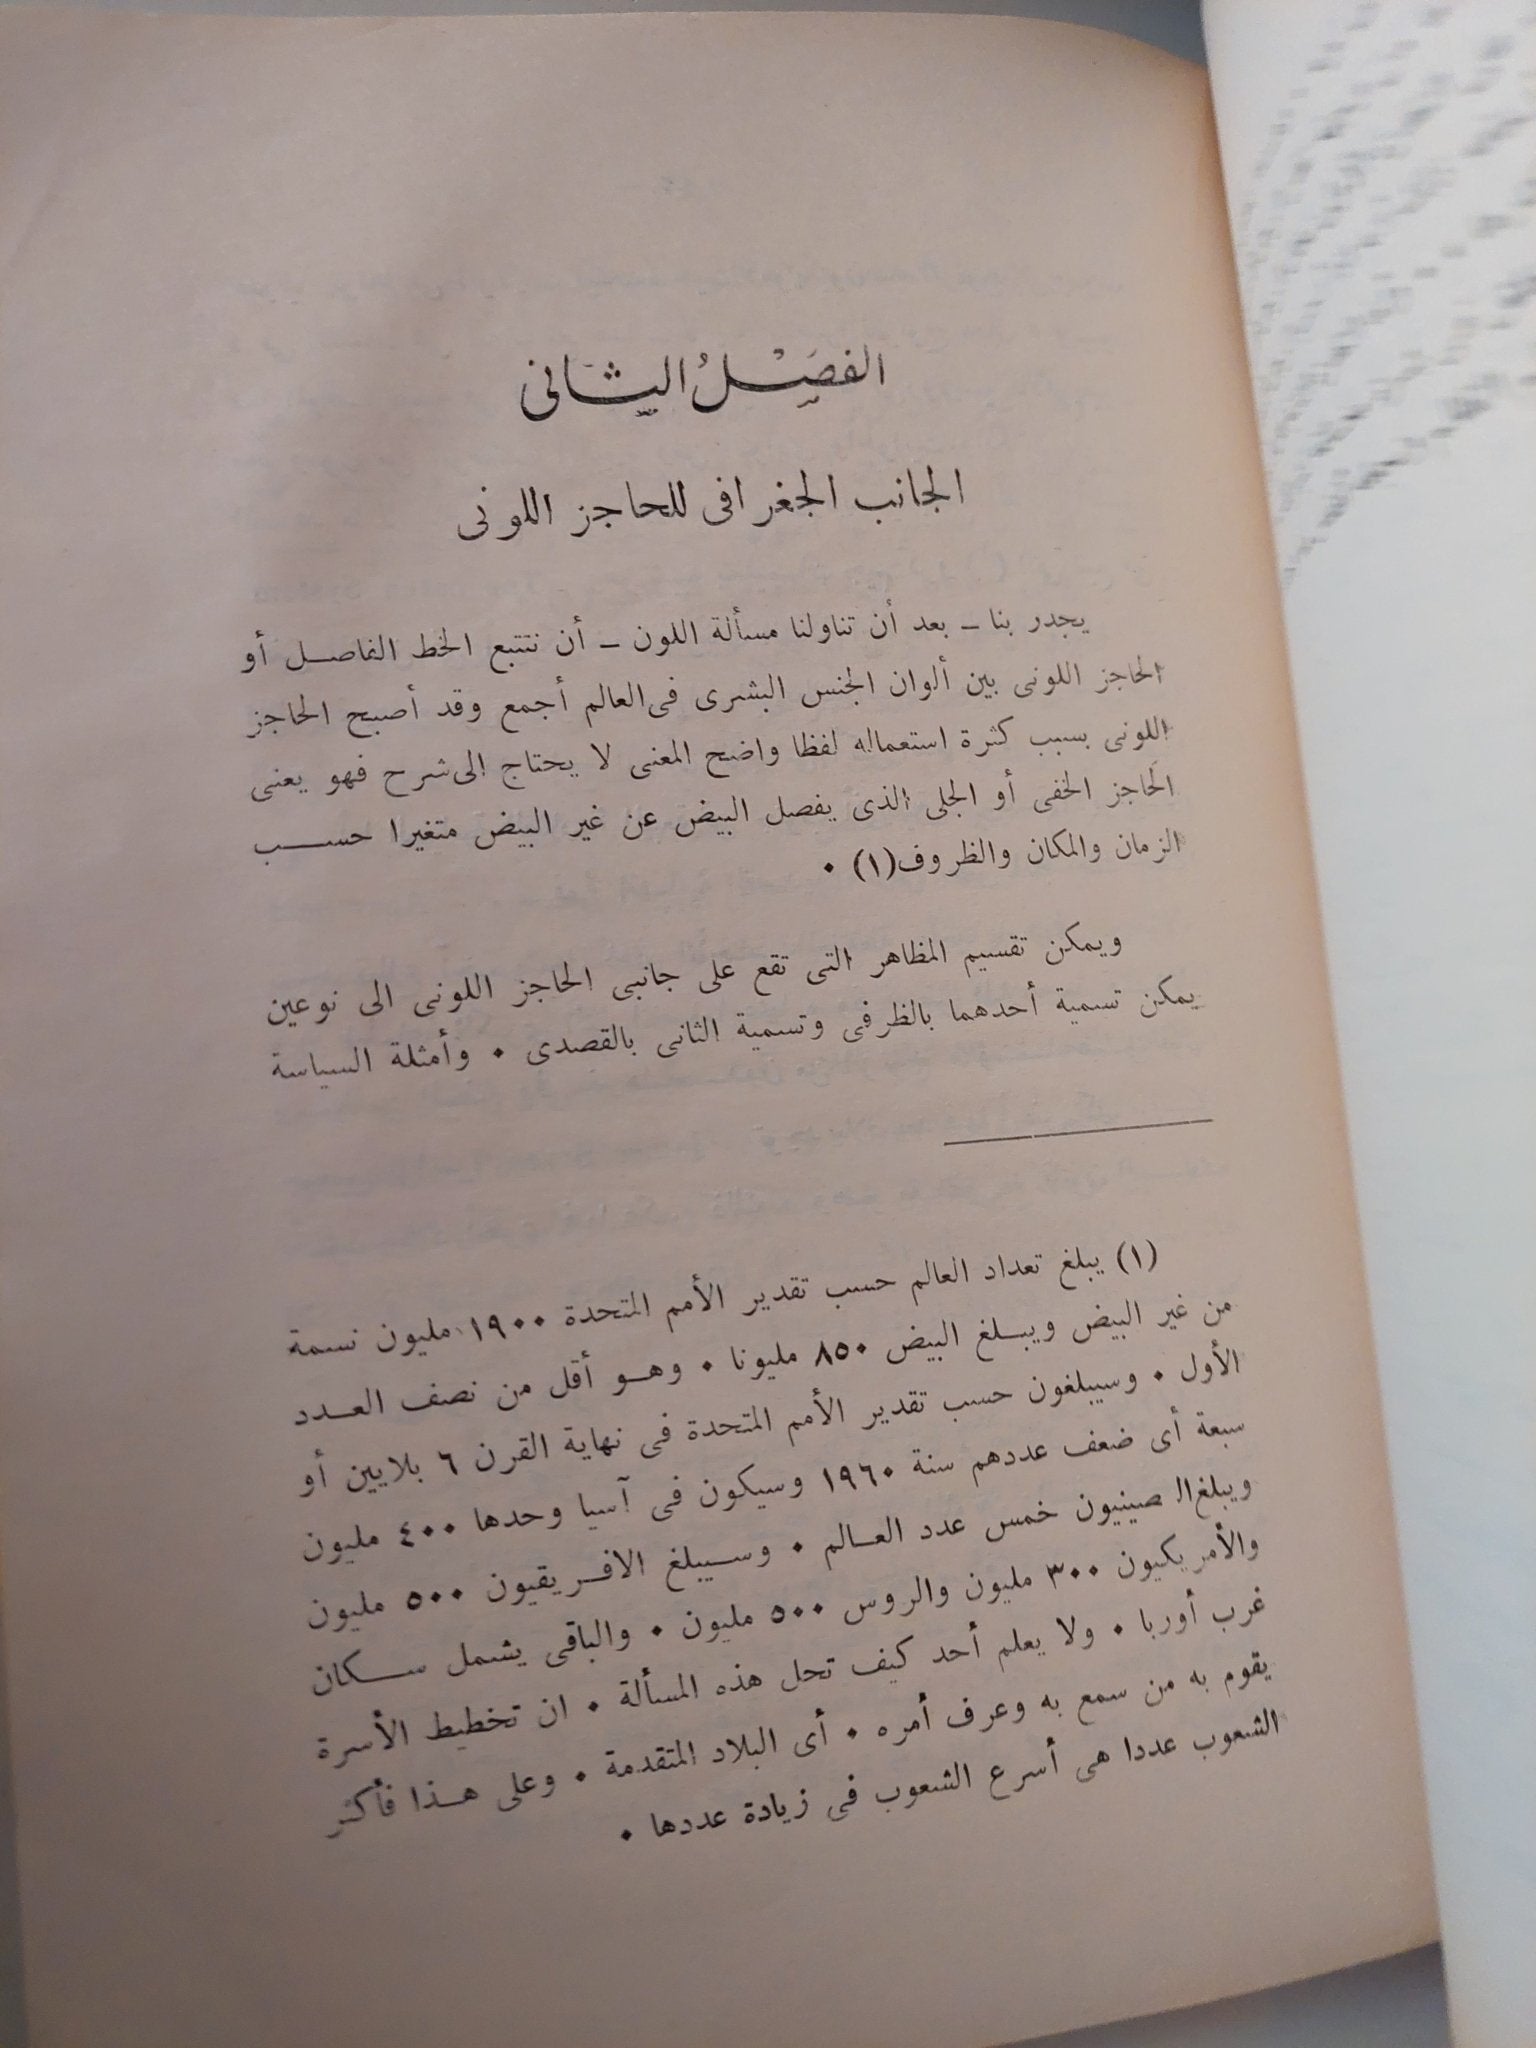 الفصل الثانى
الجانب الجغرافى للحاجز اللونى
يجدر بنا – بعد أن تناولنا مسألة اللون – أن نتتبع الخط الفاصل أو
الحاجز اللونى بين ألوان الجنس البشرى فى العالم أجمع وقد أصبح الحاجز
اللونى بسبب كثرة استعماله لفظا واضح المعنى لا يحتاج الى شرح فهو يعنى
الحاجز الخفى أو الجلى الذى يفصل البيض عن غير البيض متغيرا حسب
الزمان والمكان والظروف(١) ٠
ويمكن تقسيم المظاهر التى تقع على جانبى الحاجز اللونى الى نوعين
يمكن تسمية أحدهما بالظرفى وتسمية الثانى بالقصدى ٠ وأمثلة السياسة
(١) يبلغ تعداد العالم حسب تقدير الأمم المتحدة ١٩٠٠ مليون نسمة
من غير البيض ويبلغ البيض ٨٥٠ مليونا ٠ وهو أقل من نصف العدد
الأول ٠ وسيبلغون حسب تقدير الأمم المتحدة فى نهاية القرن ٦ بلايين أو
سبعة أى ضعف عددهم سنة ١٩٦٠ وسيكون فى آسيا وحدها ٤٠٠ مليون
ويبلغ الصينيون خمس عدد العالم ٠ وسيبلغ الافريقيون ٥٠٠ مليون
والأمريكيون ٣٠٠ مليون والروس ٥٠٠ مليون ٠ والباقى يشمل سكان
غرب أوربا ٠ ولا يعلم أحد كيف تحل هذه المسألة ٠ ان تخطيط الأسرة
يقوم به من سمع به وعرف أمره ٠ أى البلاد المتقدمة ٠ وعلى هذا فأكثر
الشعوب عددا هى أسرع الشعوب فى زيادة عددها ٠